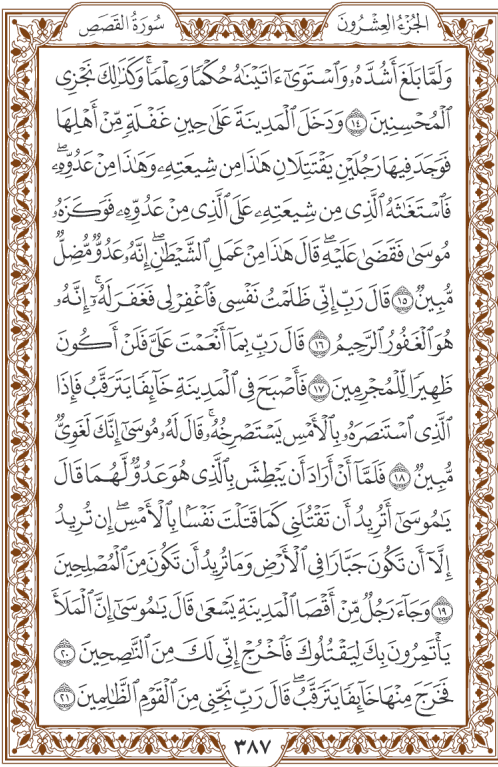 الجُزْءُ العِشْرُونَ
سُورَةُ القَصَصِ
وَلَمَّا بَلَغَ أَشُدَّهُۥ وَٱسْتَوَىٰٓ ءَاتَيْنَٰهُ حُكْمًا وَعِلْمًا ۚ وَكَذَٰلِكَ نَجْزِى
ٱلْمُحْسِنِينَ ١٤ وَدَخَلَ ٱلْمَدِينَةَ عَلَىٰ حِينِ غَفْلَةٍ مِّنْ أَهْلِهَا
فَوَجَدَ فِيهَا رَجُلَيْنِ يَقْتَتِلَانِ هَٰذَا مِن شِيعَتِهِۦ وَهَٰذَا مِنْ عَدُوِّهِۦ ۖ
فَٱسْتَغَٰثَهُ ٱلَّذِى مِن شِيعَتِهِۦ عَلَى ٱلَّذِى مِنْ عَدُوِّهِۦ فَوَكَزَهُۥ
مُوسَىٰ فَقَضَىٰ عَلَيْهِ ۖ قَالَ هَٰذَا مِنْ عَمَلِ ٱلشَّيْطَٰنِ ۖ إِنَّهُۥ عَدُوٌّ مُّضِلٌّ
مُّبِينٌ ١٥ قَالَ رَبِّ إِنِّى ظَلَمْتُ نَفْسِى فَٱغْفِرْ لِى فَغَفَرَ لَهُۥٓ ۚ إِنَّهُۥ
هُوَ ٱلْغَفُورُ ٱلرَّحِيمُ ١٦ قَالَ رَبِّ بِمَآ أَنْعَمْتَ عَلَىَّ فَلَنْ أَكُونَ
ظَهِيرًا لِّلْمُجْرِمِينَ ١٧ فَأَصْبَحَ فِى ٱلْمَدِينَةِ خَآئِفًا يَتَرَقَّبُ فَإِذَا
ٱلَّذِى ٱسْتَنصَرَهُۥ بِٱلْأَمْسِ يَسْتَصْرِخُهُۥ ۚ قَالَ لَهُۥ مُوسَىٰٓ إِنَّكَ لَغَوِىٌّ
مُّبِينٌ ١٨ فَلَمَّآ أَنْ أَرَادَ أَن يَبْطِشَ بِٱلَّذِى هُوَ عَدُوٌّ لَّهُمَا قَالَ
يَٰمُوسَىٰٓ أَتُرِيدُ أَن تَقْتُلَنِى كَمَا قَتَلْتَ نَفْسًۢا بِٱلْأَمْسِ ۖ إِن تُرِيدُ
إِلَّآ أَن تَكُونَ جَبَّارًا فِى ٱلْأَرْضِ وَمَا تُرِيدُ أَن تَكُونَ مِنَ ٱلْمُصْلِحِينَ
١٩ وَجَآءَ رَجُلٌ مِّنْ أَقْصَا ٱلْمَدِينَةِ يَسْعَىٰ قَالَ يَٰمُوسَىٰٓ إِنَّ ٱلْمَلَأَ
يَأْتَمِرُونَ بِكَ لِيَقْتُلُوكَ فَٱخْرُجْ إِنِّى لَكَ مِنَ ٱلنَّٰصِحِينَ ٢٠
فَخَرَجَ مِنْهَا خَآئِفًا يَتَرَقَّبُ ۖ قَالَ رَبِّ نَجِّنِى مِنَ ٱلْقَوْمِ ٱلظَّٰلِمِينَ ٢١
٣٨٧